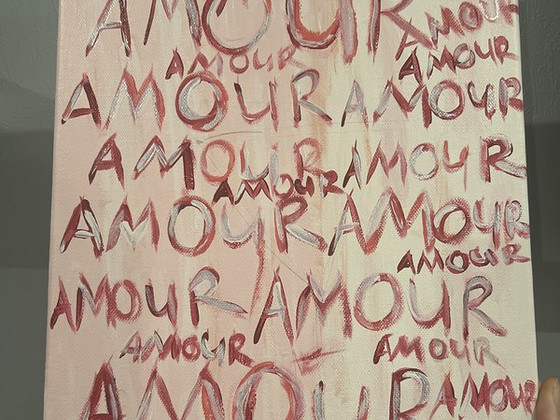 AMOUR AMOUR
AMOUR AMOUR
AMOUR AMOUR
AMOUR AMOUR
AMOUR
AMOUR AMOUR
AMOUR
AMOUR AMOUR
AMOUR AMOUR
AMOUR AMOUR